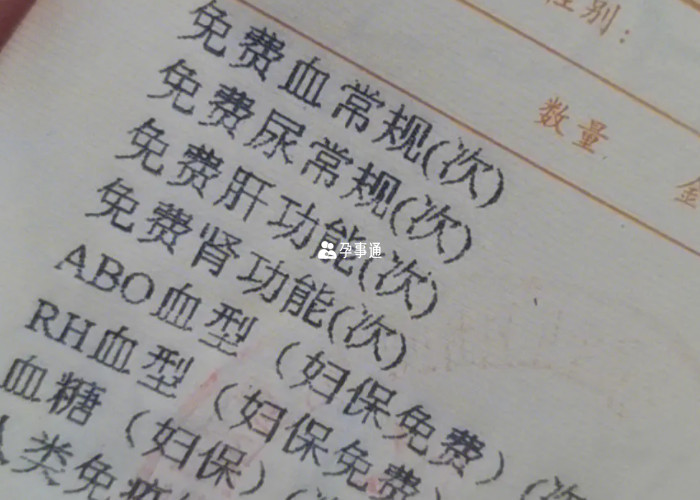 性别:
数量 金
免费血常规(次)
免费尿常规(次)
免费肝功能(次)
免费肾功能(次)
ABO血型（妇保免费）（次
RH血型（妇保免费）
血糖（妇保）（
人类免疫
孕事通